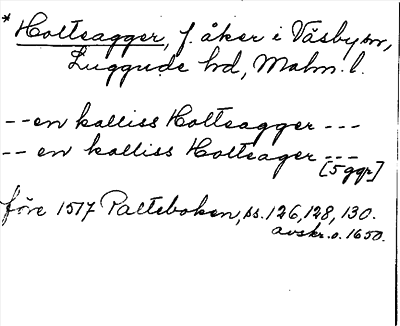 * Holtsagger, f. åker i Väsby sn,
Luggude hd, Malm. l.
-- en kalliss Holtsagger ---
-- en kalliss Holtsager ---
[5 ggr]
före 1517 Palteboken, ss. 126, 128, 130.
avskr. o. 1650.